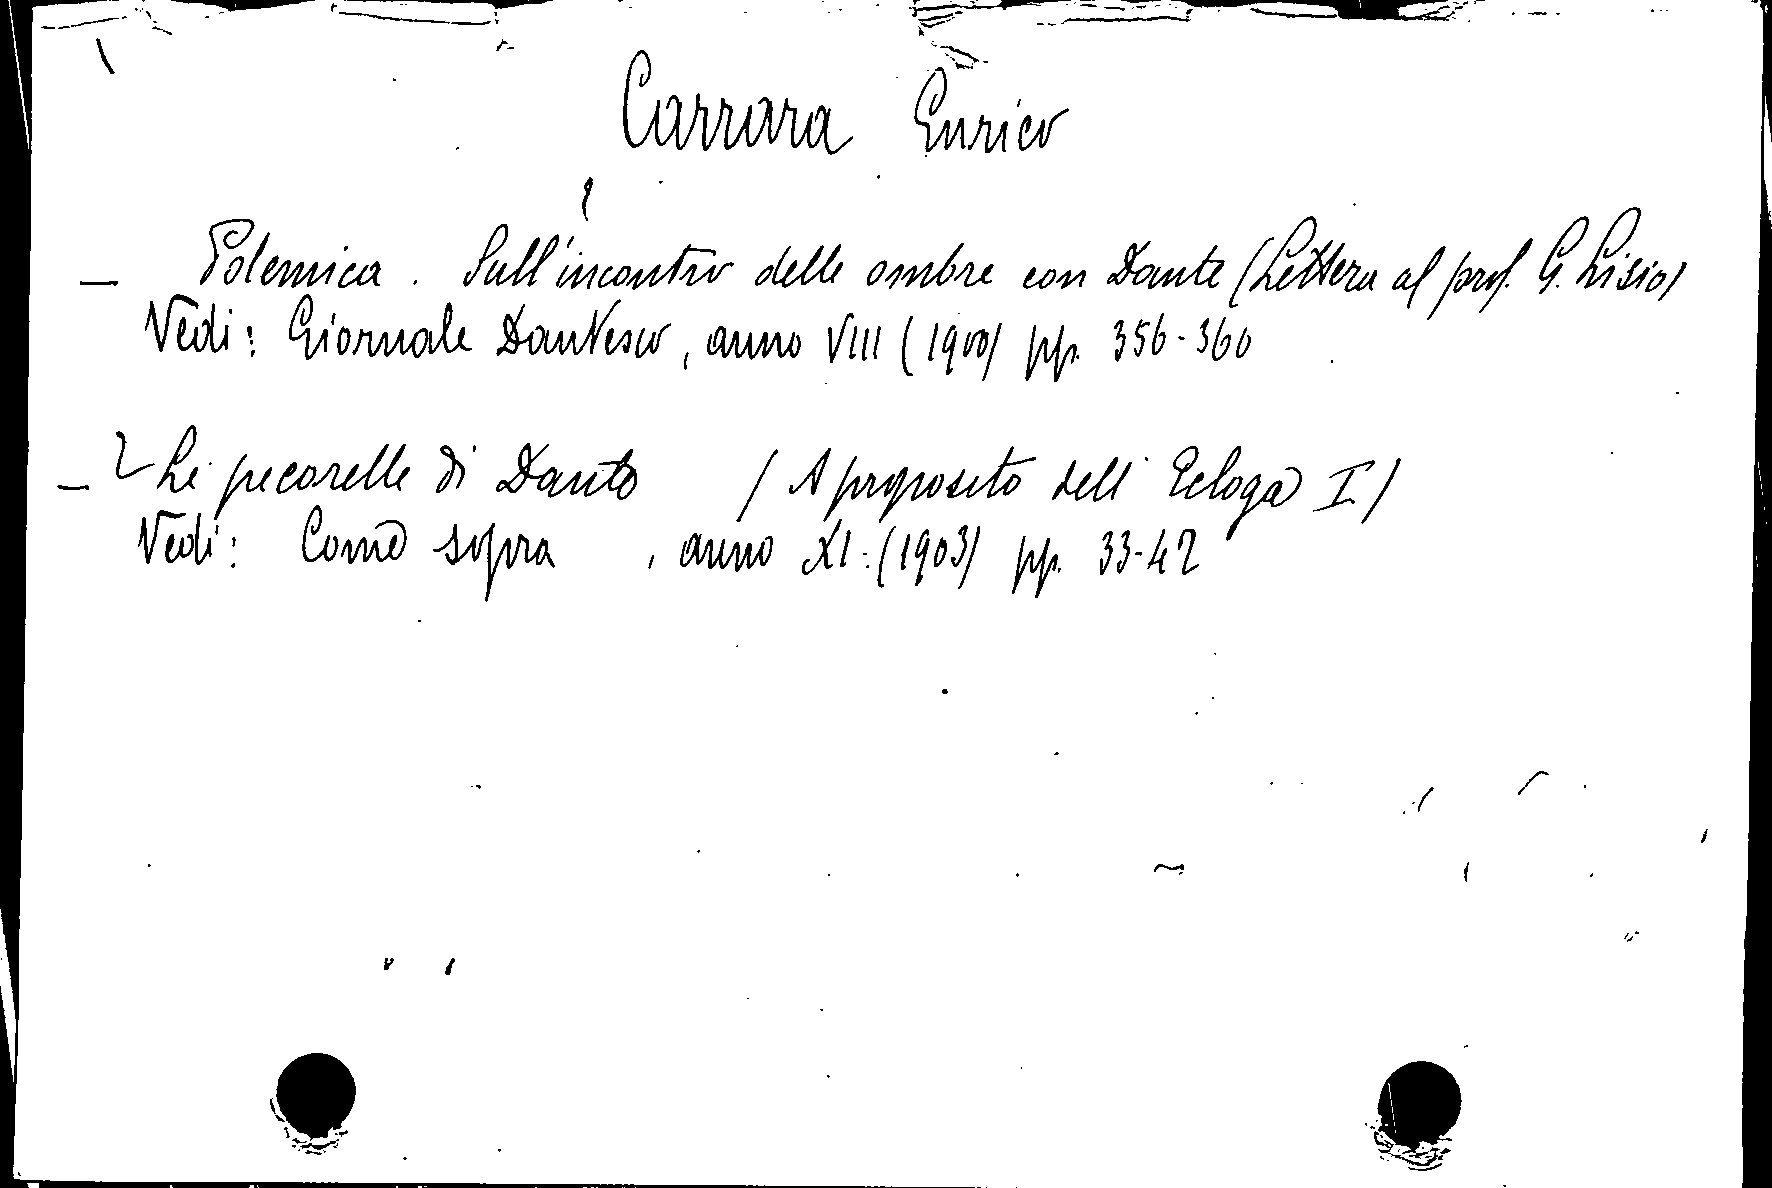 Carrara Enrico
— Polemica. Sull'incontro delle ombre con Dante (Lettera al prof. G. Lisio)
Vedi: Giornale Dantesco, anno VIII (1900) pp. 356-360
— Le pecorelle di Dante (A proposito dell'Ecloga I)
Vedi: Come sopra, anno XI: (1903) pp. 33-42